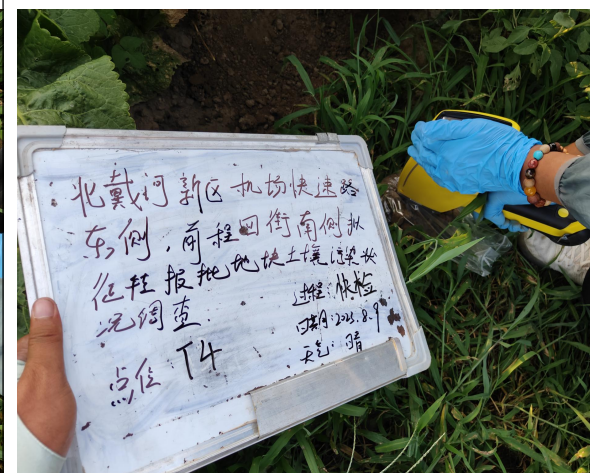 北戴河新区机场快速路
东侧,前程四街南侧拟
征转报批地块土壤污染状
况调查
过程:快检
日期:2023.8.9
天气:晴
点位 T4